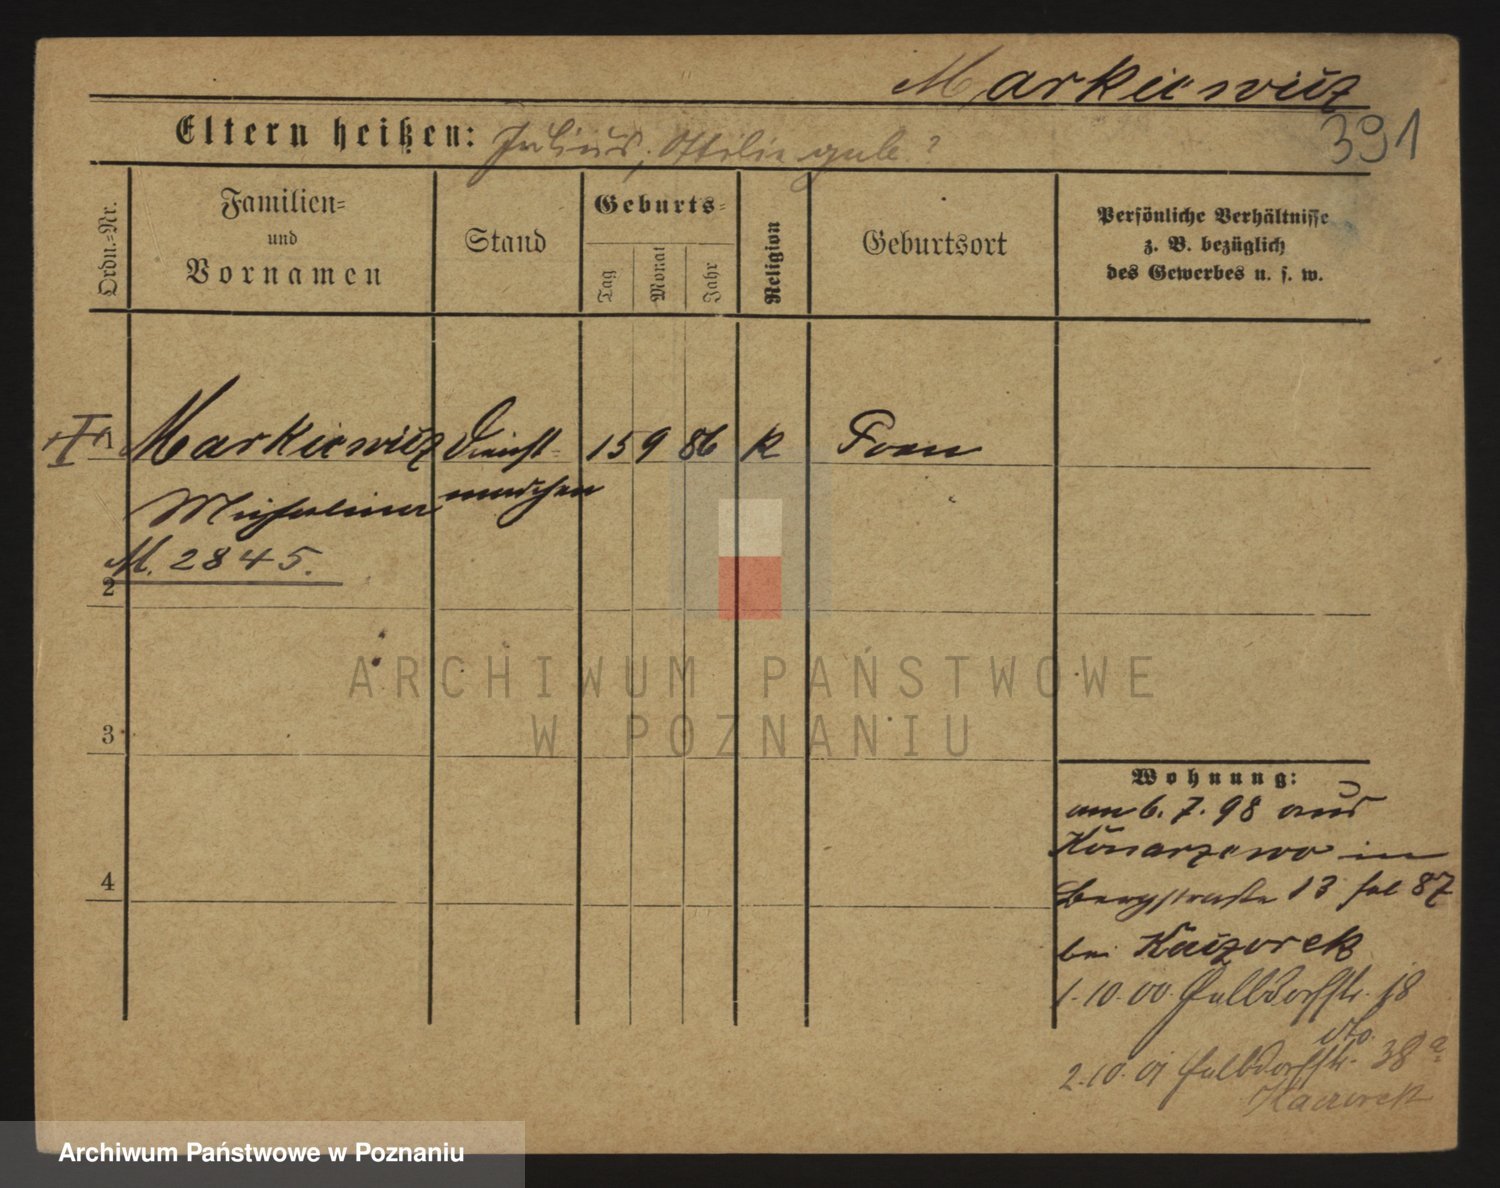 Markiewicz
391
Eltern heißen: Julius, Ottilie geb. ?
Ordn.-Nr.
Familien-
und
Vornamen
Stand
Geburts-
Tag
Monat
Jahr
Religion
Geburtsort
Persönliche Verhältnisse
z. B. bezüglich
des Gewerbes u. s. w.
1 Markiewicz Dienst- 15 9 86 k Posen
mädchen
M. 2845.
2
3
4
Wohnung:
am 6. 7. 98 aus
Konarzewo in
Bergstraße 13 bei
Kaczorek
1.10.00. Halbdorfstr. 18
dto.
2.10.01 Halbdorfstr. 38a
Kaczorek
ARCHIWUM PAŃSTWOWE
W POZNANIU
Archiwum Państwowe w Poznaniu